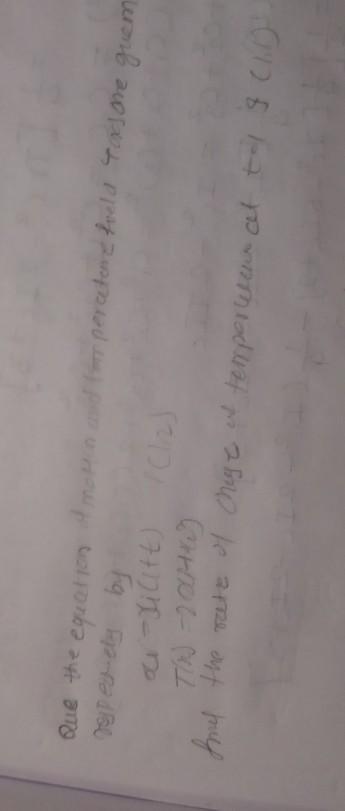 Que the equation of motion and temperature field T(x) are given
respectively by
xi = Xi(1+t) , (1,2)
T(x) = 2x1+x2
find the rate of change of temperature at t=1 & (1,1)